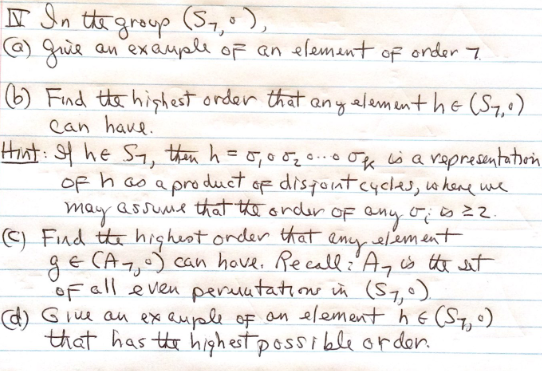 IV In the group (S₇,∘),
(a) give an example of an element of order 7.
(b) Find the highest order that any element h ∈ (S₇,∘)
can have.
Hint: If h ∈ S₇, then h = σ₁∘σ₂∘...∘σₖ is a representation
of h as a product of disjoint cycles, where we
may assume that the order of any σᵢ is ≥2.
(c) Find the highest order that any element
g ∈ (A₇,∘) can have. Recall: A₇ is the set
of all even permutations in (S₇,∘)
(d) Give an example of an element h ∈ (S₇,∘)
that has the highest possible order.